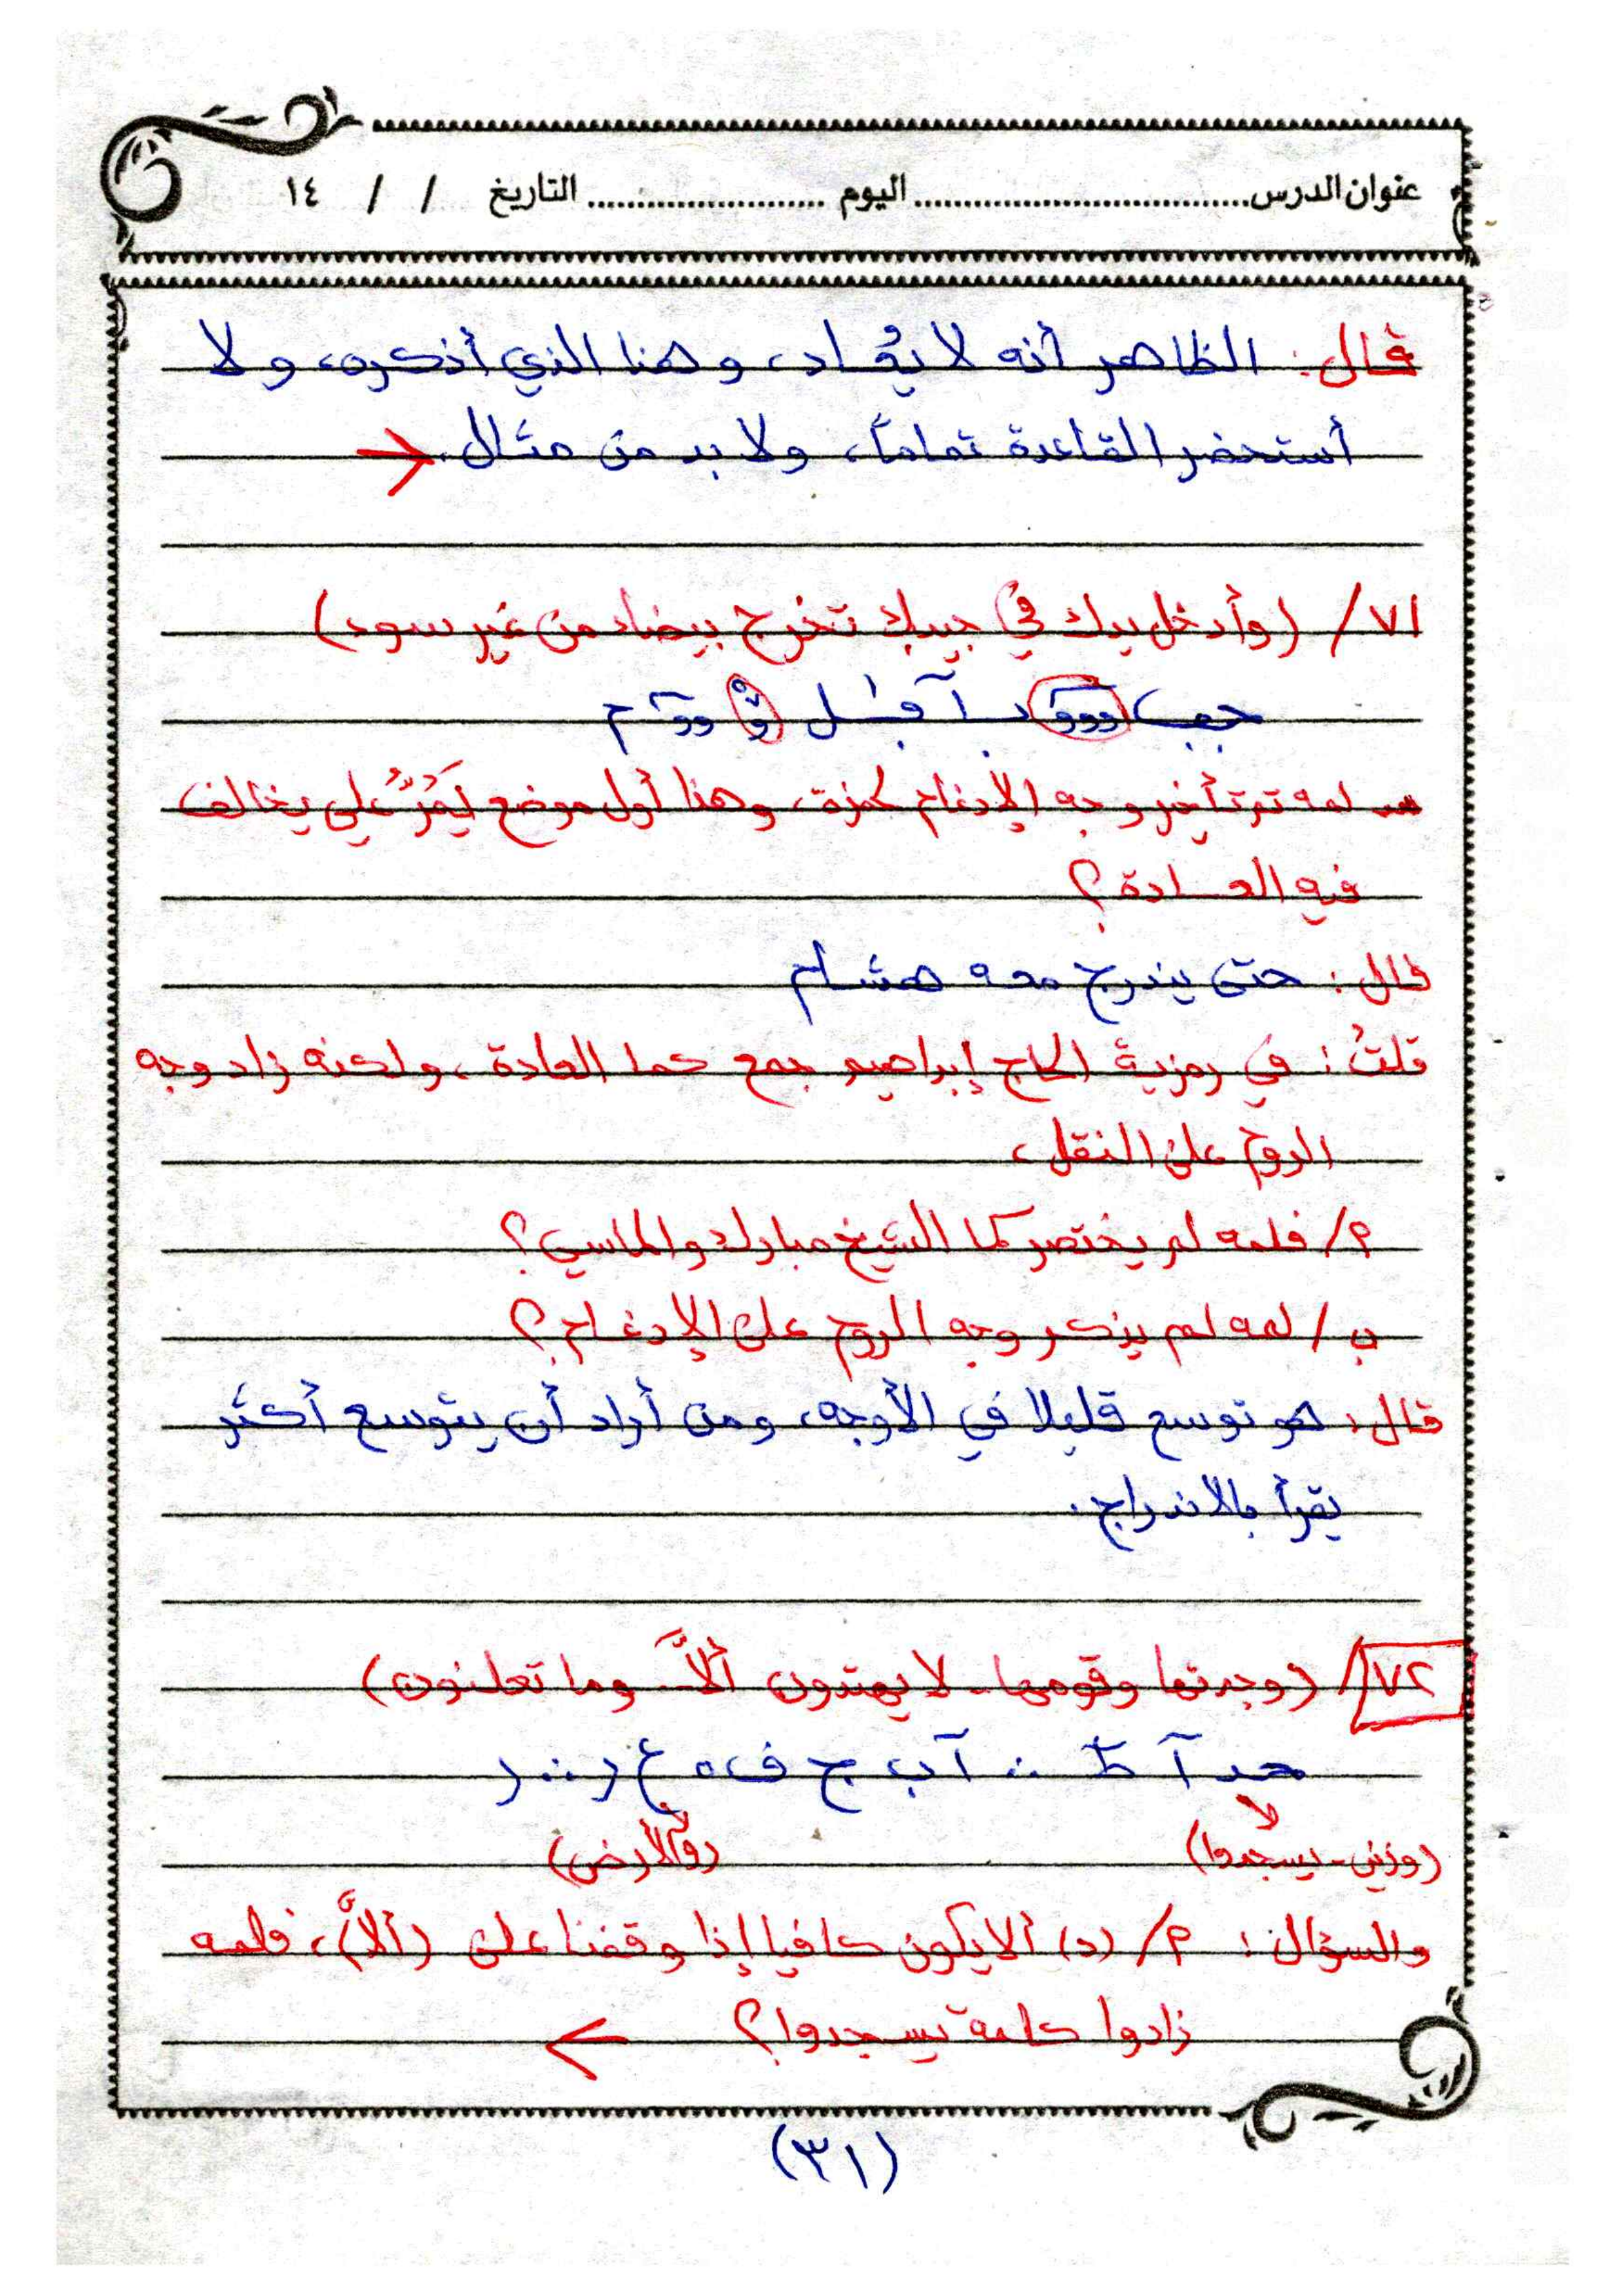 عنوان الدرس ................................ اليوم ...................... التاريخ / / ١٤
قال: الظاهر أنه لا يُعاد، وهذا الذي أذكره، ولا
أستحضر القاعدة تماماً، ولا بد من مثال.
٧١/ (وأدخل يدك في جيبك تخرج بيضاء من غير سوء)
لمه تم تأخير وجه الإدغام لحمزة، وهذا أول موضع يَمُرُّ علي يخالف
فيه العادة؟
قال: حتى يندرج معه هشام
قلتُ: في رمزية الحاج إبراهيم جمع كما العادة، ولكنه زاد وجه
الروم على النقل،
م/ فلمه لم يختصر كما الشيخ مبارك والماسي؟
ب/ لمه لم يذكر وجه الروم على الإدغام؟
قال: هو توسع قليلا في الأوجه، ومن أراد أن يتوسع أكثر
يقرأ بالاندراج.
٧٢/ (وجدتها وقومها - لا يهتدون ألاَّ .. وما تعلنون)
(وزين - يسجدوا) (والأرض)
والسؤال: م/ (د) ألا يكون كافيا إذا وقفنا على (ألاَّ)، فلمه
زادوا كلمة يسجدوا؟
(٣١)